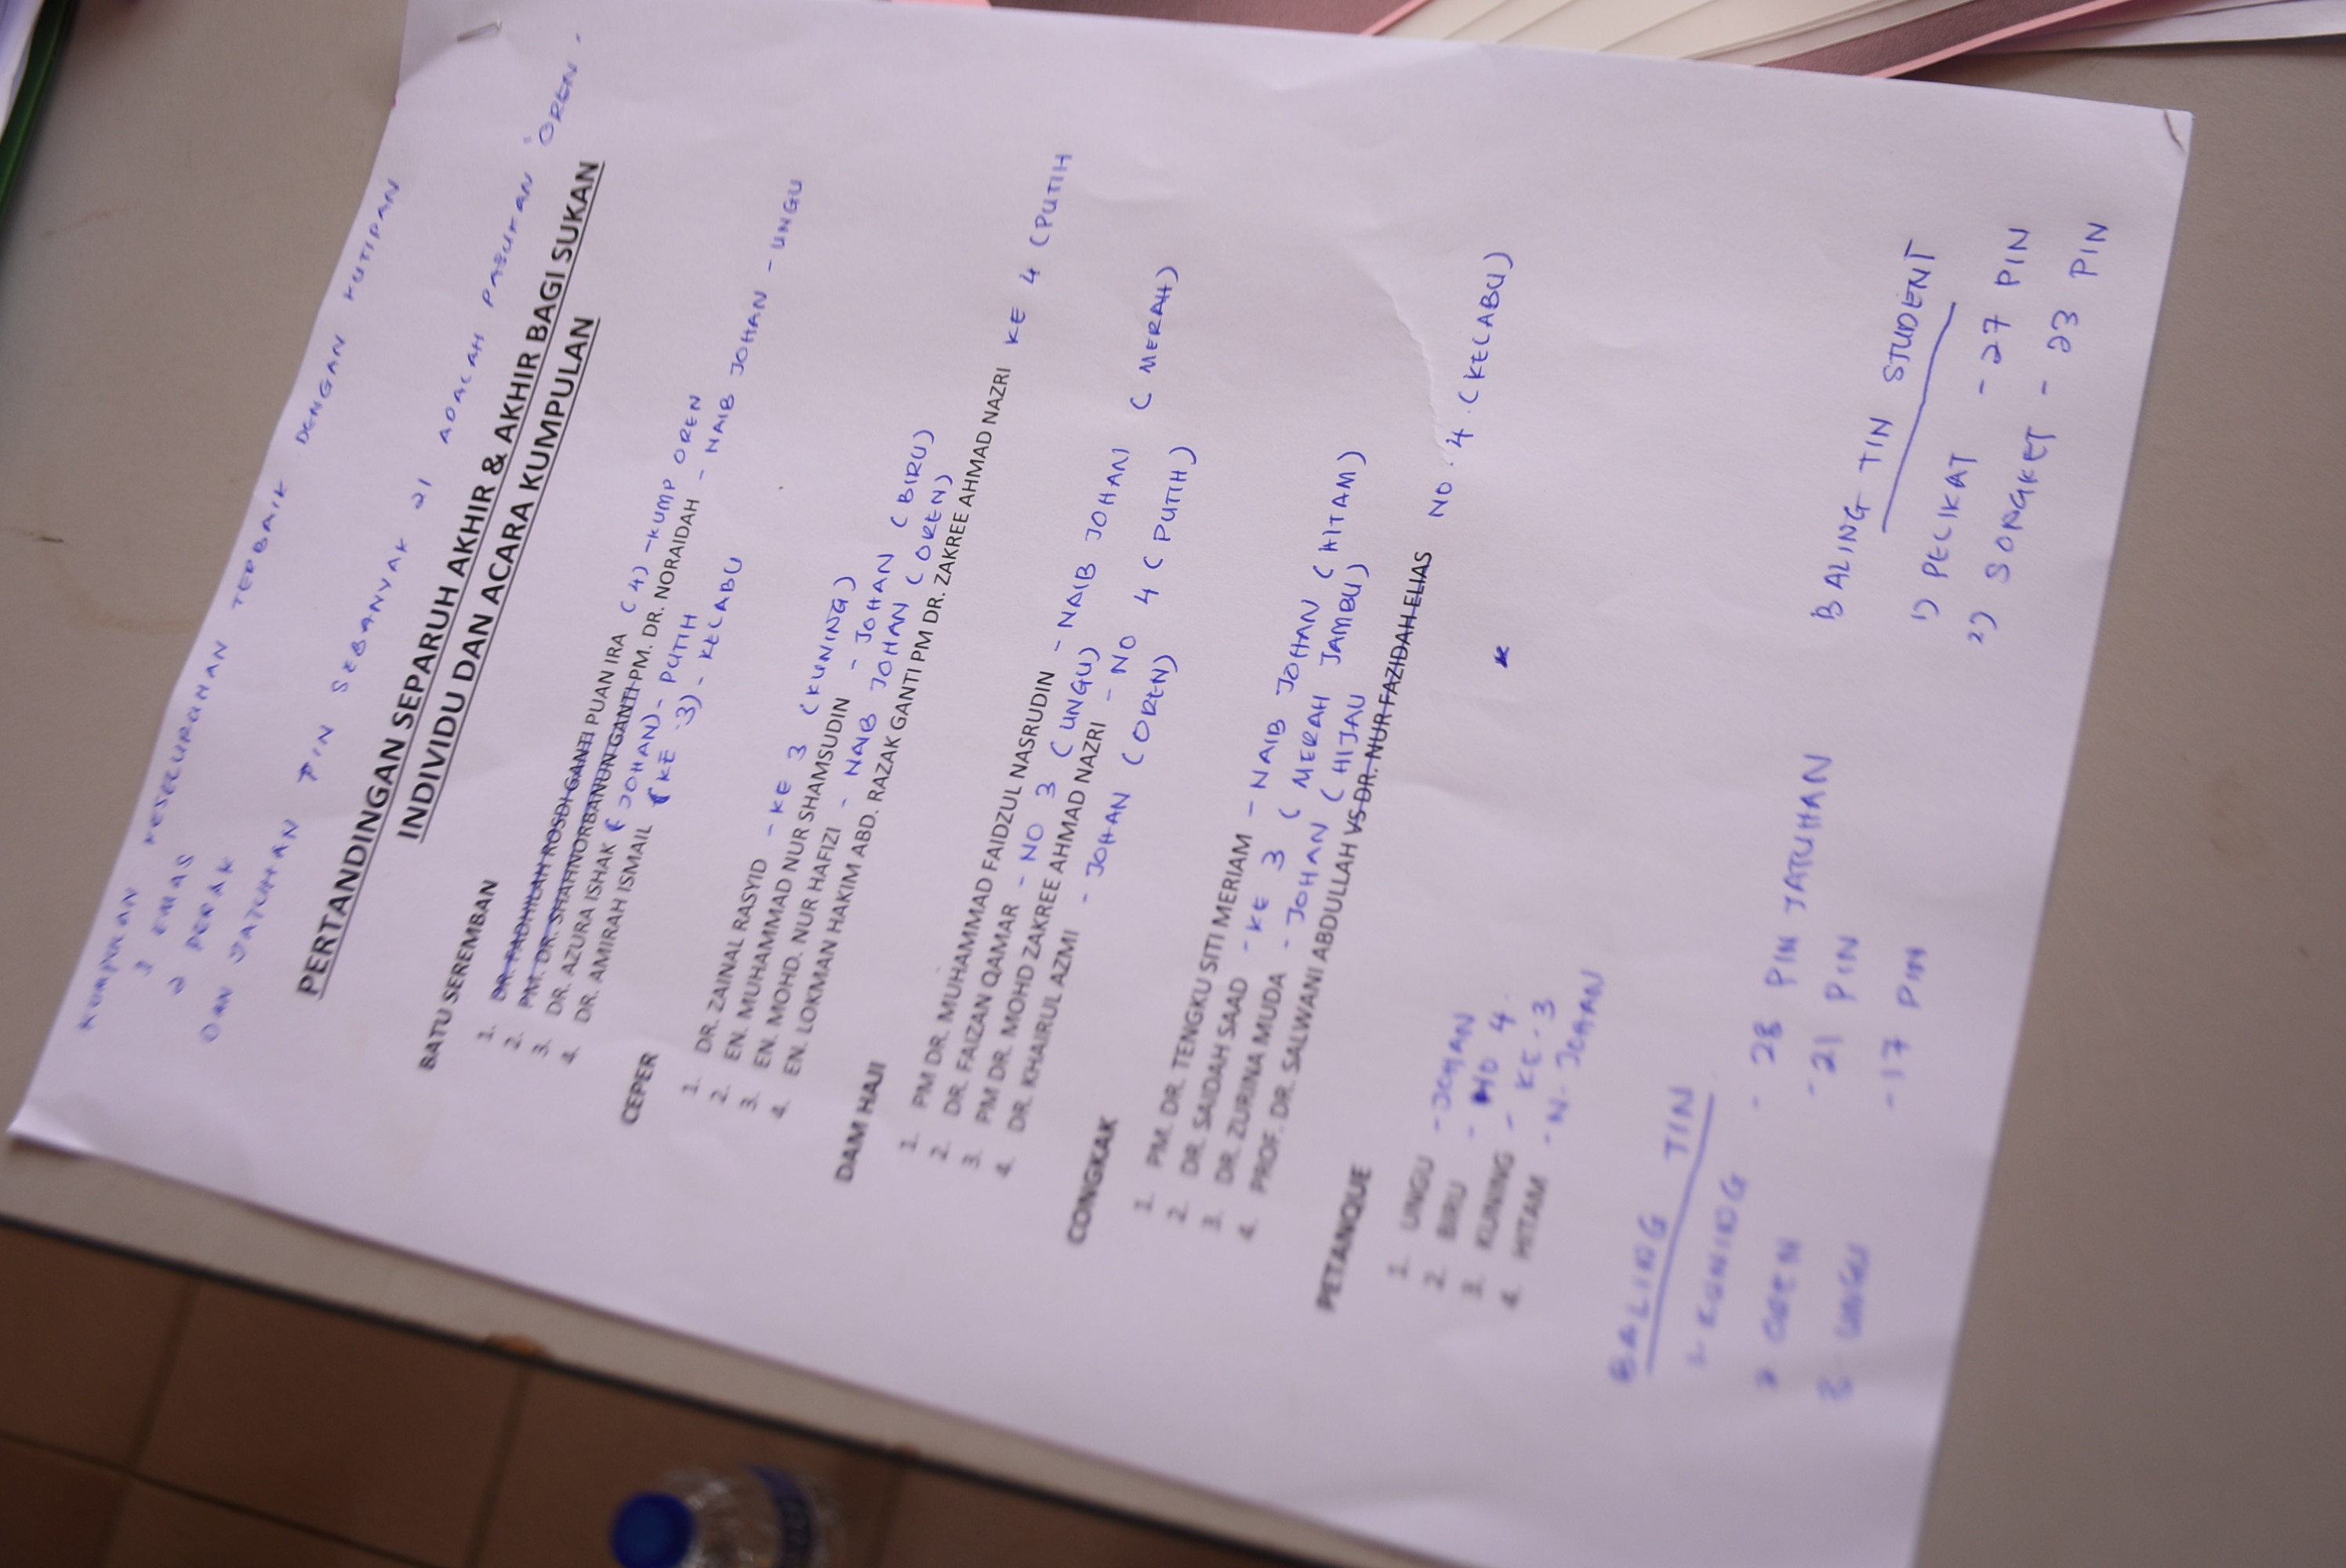 KUMPULAN KESELURUHAN TERBAIK DENGAN KUTIPAN
3 EMAS
2 PERAK
DAN JATUHAN PIN SEBANYAK 21 ADALAH PASUKAN 'OREN.
PERTANDINGAN SEPARUH AKHIR & AKHIR BAGI SUKAN
INDIVIDU DAN ACARA KUMPULAN
BATU SEREMBAN
1. DR. FADHILAH ROSDI GANTI PUAN IRA (4) - KUMP OREN
2. PM. DR. SHAHNORBANUN GANTI PM. DR. NORAIDAH - NAIB JOHAN - UNGU
3. DR. AZURA ISHAK (JOHAN) - PUTIH
4. DR. AMIRAH ISMAIL (KE 3) - KELABU
CEPER
1. DR. ZAINAL RASYID - KE 3 (KUNING)
2. EN. MUHAMMAD NUR SHAMSUDIN - JOHAN (BIRU)
3. EN. MOHD. NUR HAFIZI - NAIB JOHAN (OREN)
4. EN. LOKMAN HAKIM ABD. RAZAK GANTI PM DR. ZAKREE AHMAD NAZRI KE 4 (PUTIH
DAM HAJI
1. PM DR. MUHAMMAD FAIDZUL NASRUDIN - NAIB JOHAN (MERAH)
2. DR. FAIZAN QAMAR - NO 3 (UNGU)
3. PM DR. MOHD ZAKREE AHMAD NAZRI - NO 4 (PUTIH)
4. DR. KHAIRUL AZMI - JOHAN (OREN)
CONGKAK
1. PM. DR. TENGKU SITI MERIAM - NAIB JOHAN (HITAM)
2. DR. SAIDAH SAAD - KE 3 (MERAH JAMBU)
3. DR. ZURINA MUDA - JOHAN (HIJAU
4. PROF. DR. SALWANI ABDULLAH VS DR. NUR FAZIDAH ELIAS NO. 4. (KELABU)
PETANQUE
1. UNGU - JOHAN
2. BIRU - NO 4.
3. KUNING - KE. 3
4. HITAM - N. JOHAN
BALING TIN
1- KUNING - 28 PIN JATUHAN
2 OREN - 21 PIN
3 UNGU - 17 PIN
BALING TIN STUDENT
1) PELIKAT - 27 PIN
2) SONGKET - 23 PIN